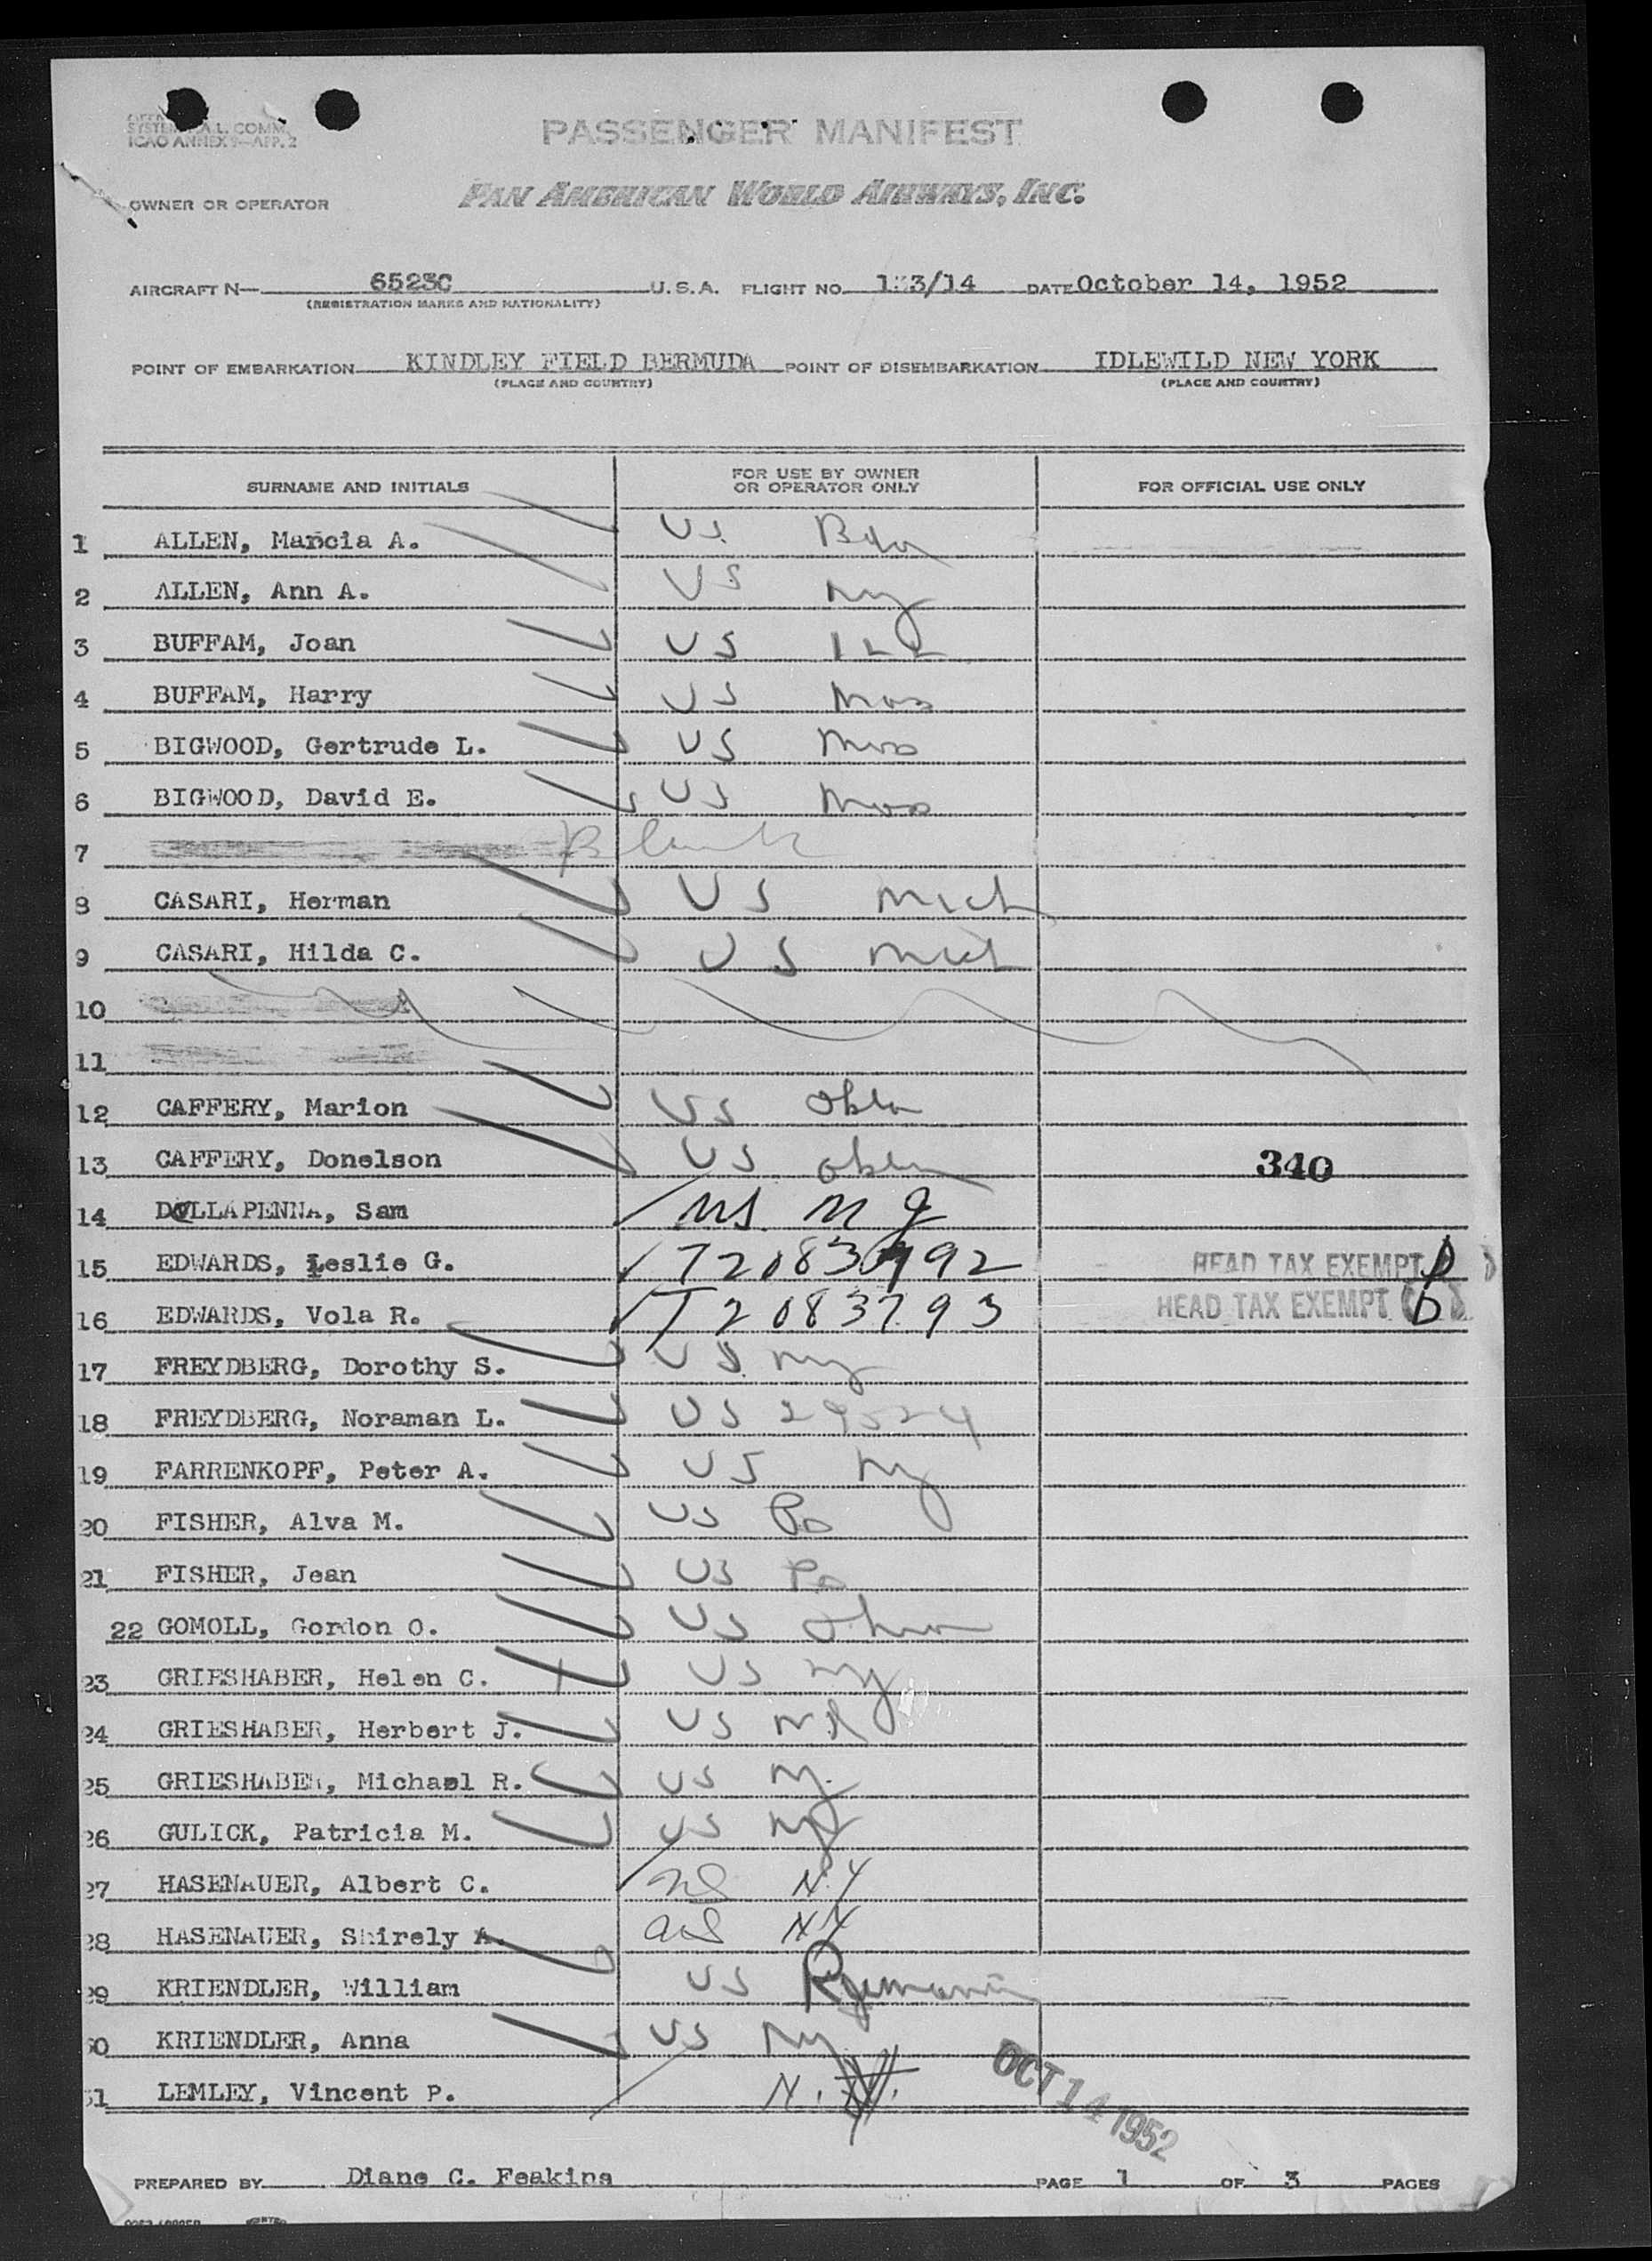 SYSTEM P.A.L. COMM.
ICAO ANNEX 9—APP. 2
PASSENGER MANIFEST
OWNER OR OPERATOR PAN AMERICAN WORLD AIRWAYS, INC.
AIRCRAFT N— 6523C U.S.A. FLIGHT NO. 133/14 DATE October 14, 1952
(REGISTRATION MARKS AND NATIONALITY)
POINT OF EMBARKATION KINDLEY FIELD BERMUDA POINT OF DISEMBARKATION IDLEWILD NEW YORK
(PLACE AND COUNTRY) (PLACE AND COUNTRY)
SURNAME AND INITIALS FOR USE BY OWNER OR OPERATOR ONLY FOR OFFICIAL USE ONLY
1 ALLEN, Marcia A. US Bda
2 ALLEN, Ann A. US Ny
3 BUFFAM, Joan US ILL
4 BUFFAM, Harry US Mass
5 BIGWOOD, Gertrude L. US Mass
6 BIGWOOD, David E. US Mass
7 Blank
8 CASARI, Herman US Mich
9 CASARI, Hilda C. US Mich
10
11
12 CAFFERY, Marion US Okla
13 CAFFERY, Donelson US Okla 340
14 DELLAPENNA, Sam US N J
15 EDWARDS, Leslie G. T2083792 HEAD TAX EXEMPT
16 EDWARDS, Vola R. T2083793 HEAD TAX EXEMPT
17 FREYDBERG, Dorothy S. US Ny
18 FREYDBERG, Noraman L. US 29524
19 FARRENKOPF, Peter A. US Ny
20 FISHER, Alva M. US Pa
21 FISHER, Jean US Pa
22 GOMOLL, Gordon O. US Ohio
23 GRIESHABER, Helen C. US Ny
24 GRIESHABER, Herbert J. US
25 GRIESHABER, Michael R. US Ny
26 GULICK, Patricia M. US Ny
27 HASENAUER, Albert C. US N.Y
28 HASENAUER, Shirely A. US NY
29 KRIENDLER, William US
30 KRIENDLER, Anna US Ny
31 LEMLEY, Vincent P. N.
OCT 14 1952
PREPARED BY Diane C. Feakins PAGE 1 OF 3 PAGES